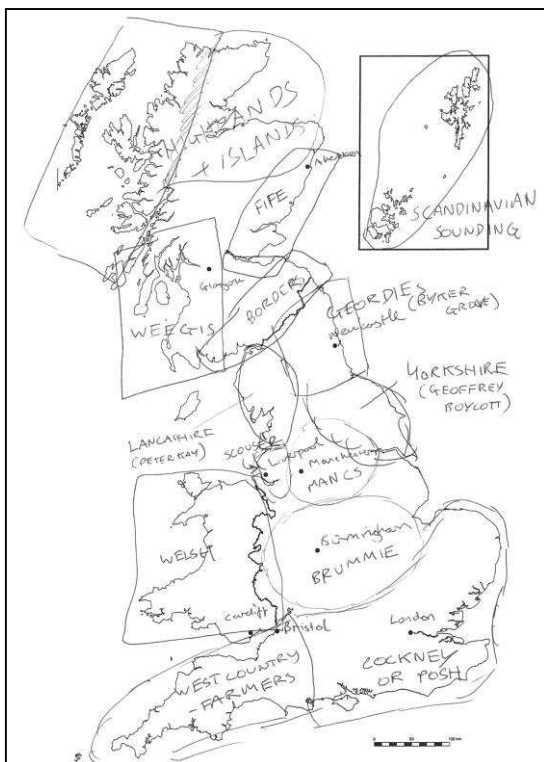 HIGHLANDS
+ ISLANDS
Aberdeen
FIFE
SCANDINAVIAN
SOUNDING
Glasgow
WEEGIS
BORDERS
GEORDIES
(BYKER
GROVE)
Newcastle
YORKSHIRE
(GEOFFREY
BOYCOTT)
LANCASHIRE
(PETER KAY)
SCOUSER
Liverpool
Manchester
MANCS
WELSH
Birmingham
BRUMMIE
Cardiff
Bristol
London
WEST COUNTRY
- FARMERS
COCKNEY
OR POSH